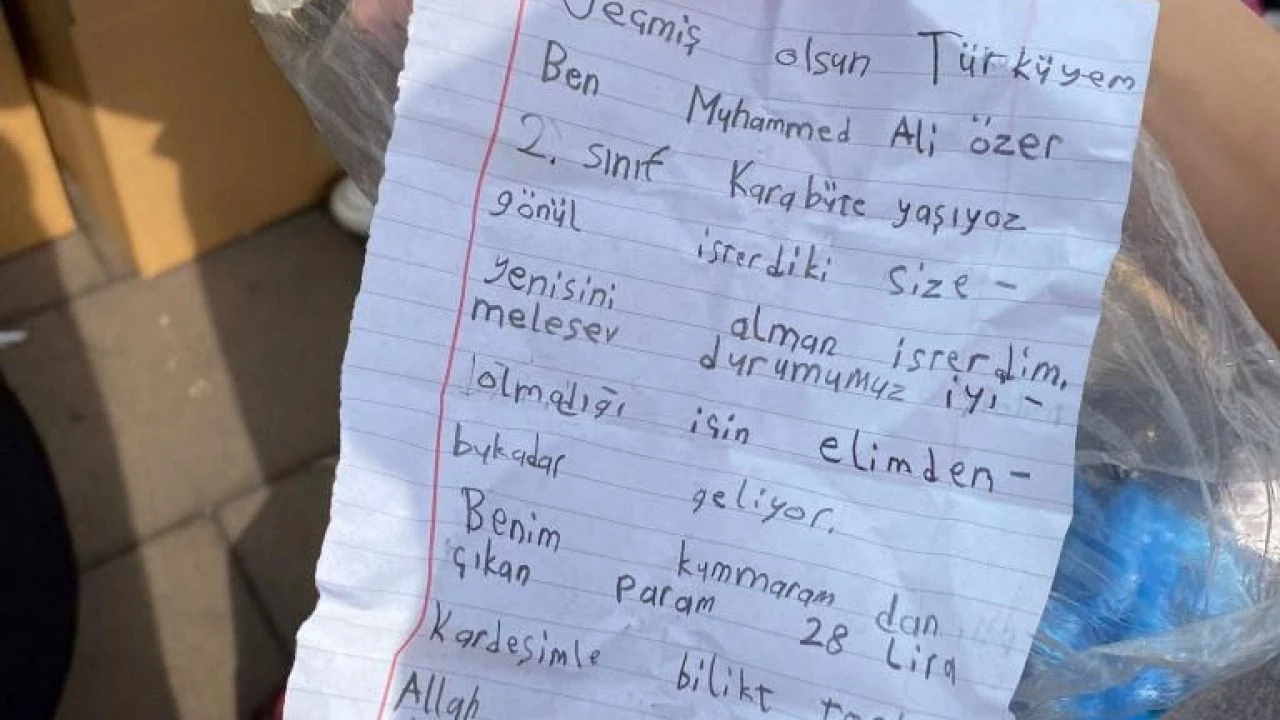 Geçmiş olsun Türküyem
Ben Muhammed Ali özer
2. sınıf Karabüte yaşıyoz
gönül isterdiki size -
yenisini alman isterdim,
melesev durumumuz iyi -
olmadığı işin elimden -
bukadar geliyor.
Benim kummaram dan
çıkan param 28 Lira
Kardeşimle bilikt
Allah